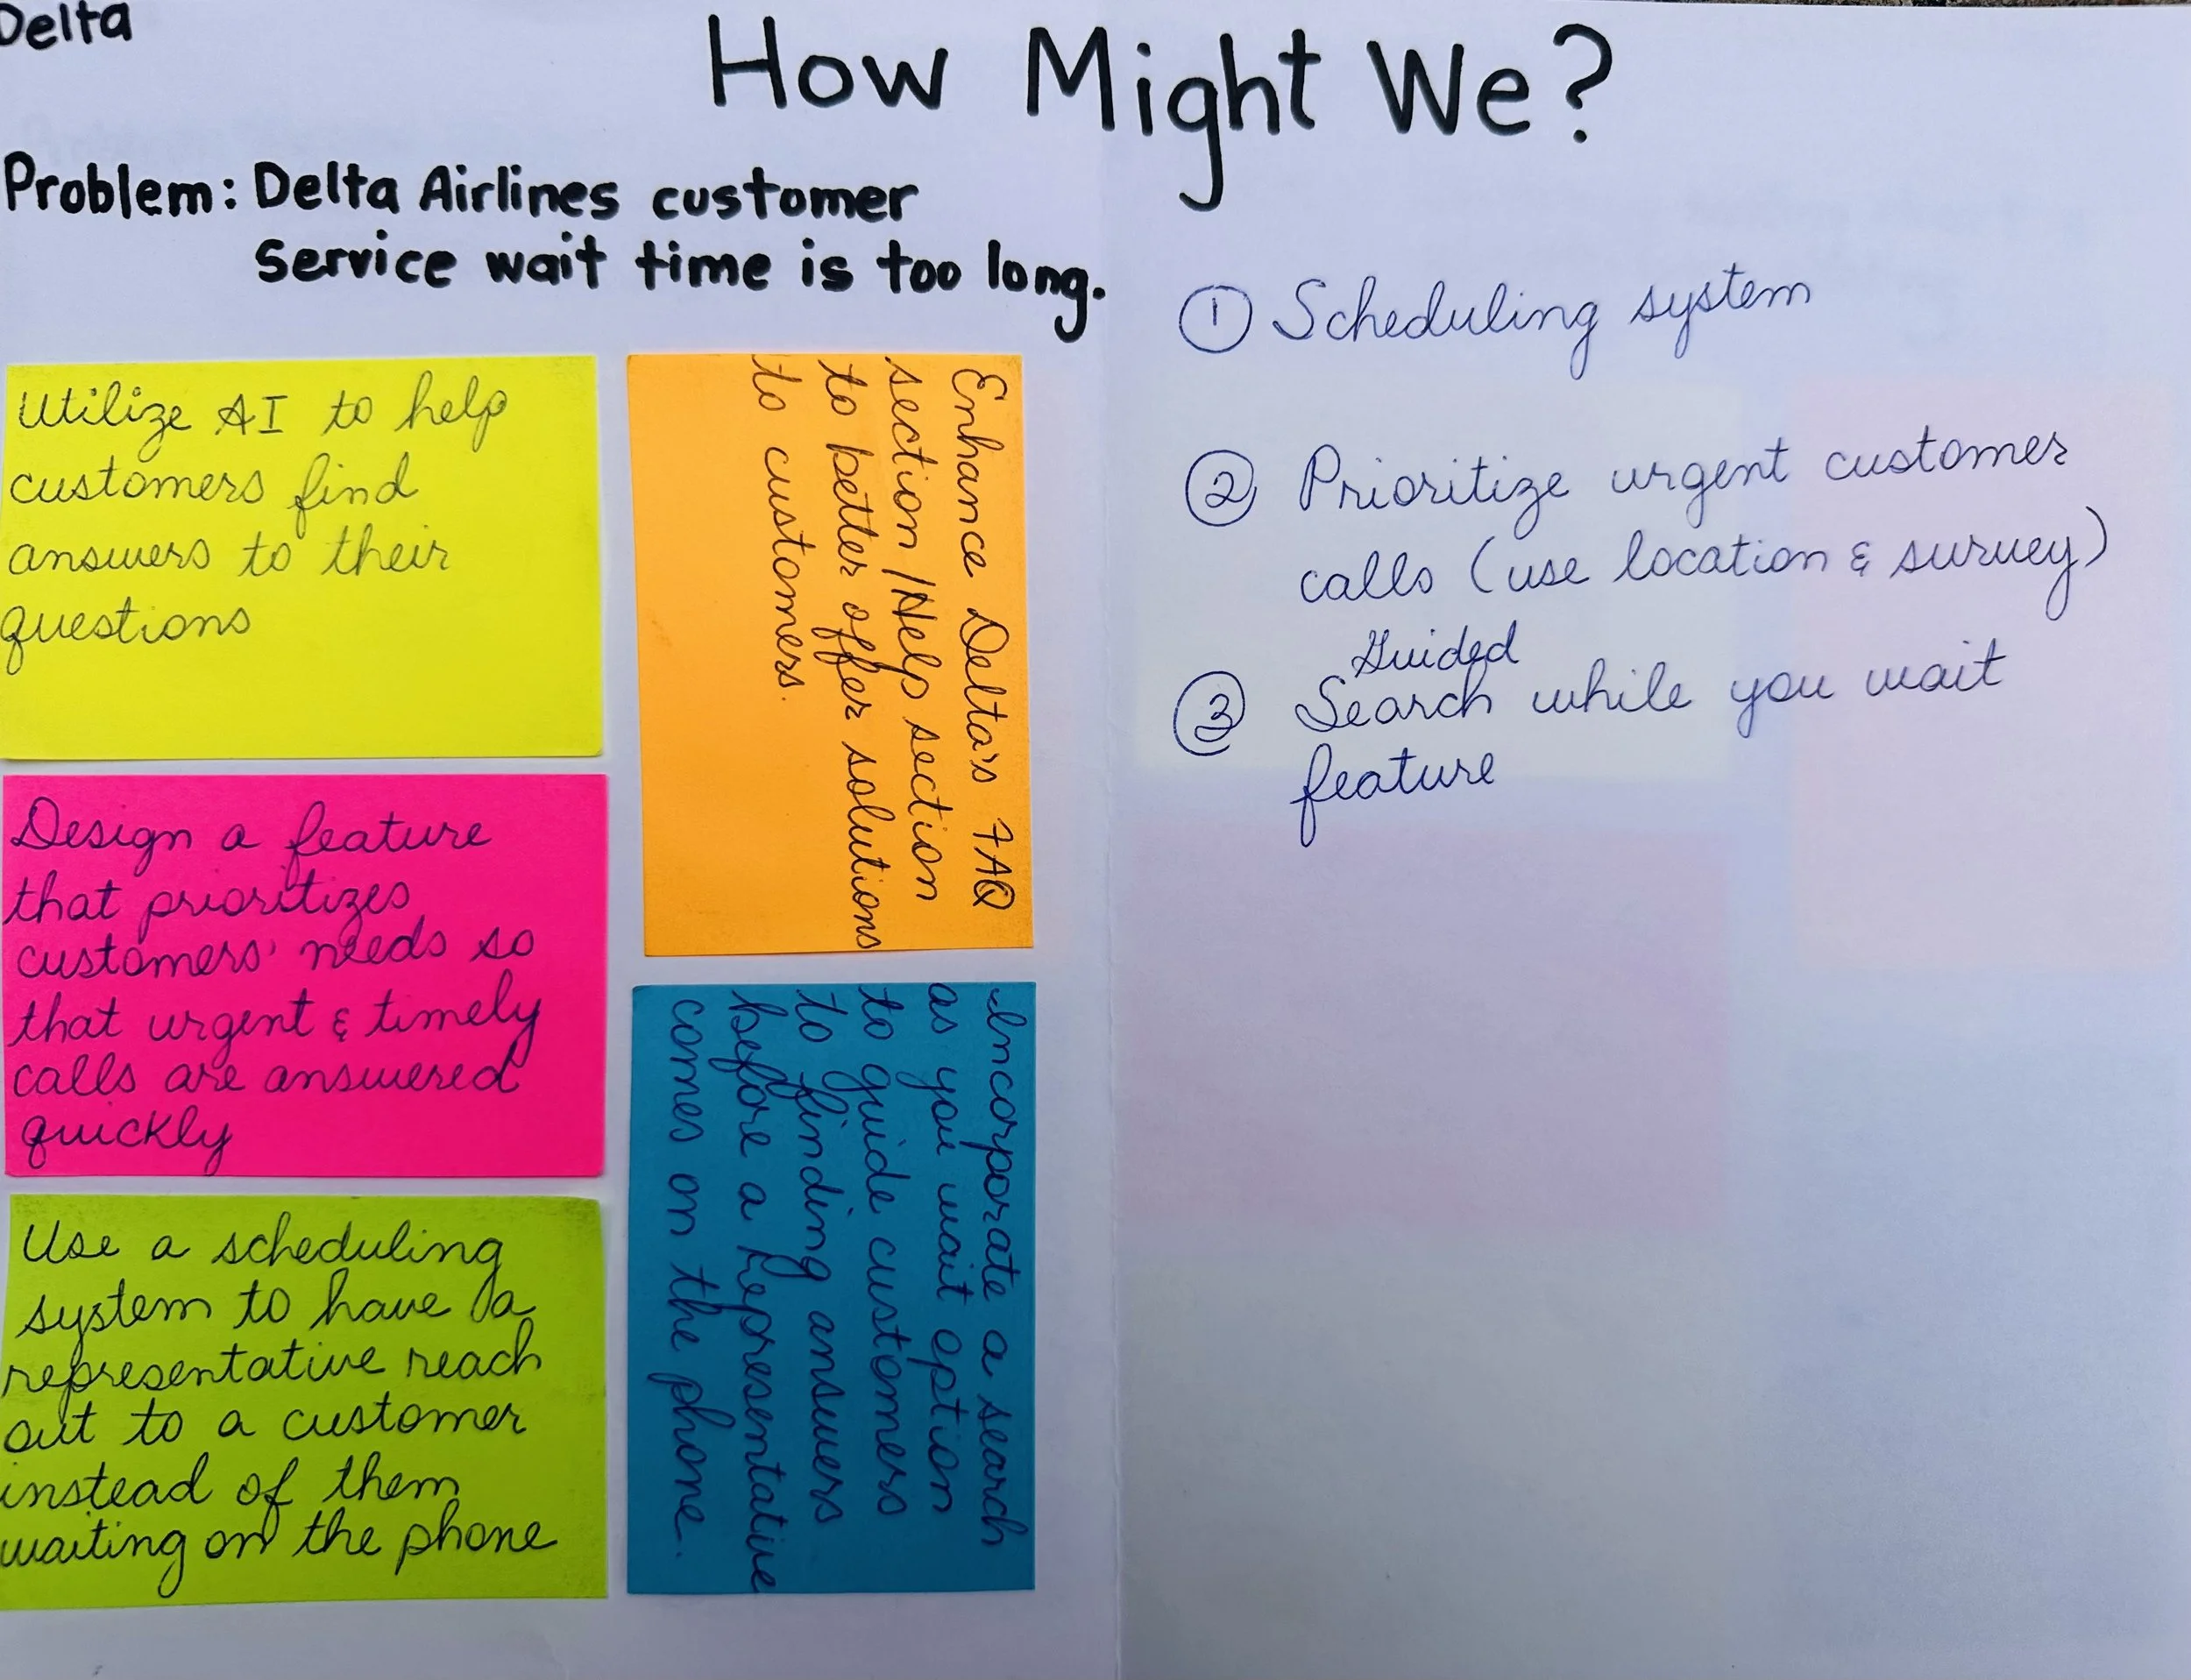 Delta
How Might We?
Problem: Delta Airlines customer
service wait time is too long.
Utilize AI to help
customers find
answers to their
questions
Design a feature
that prioritizes
customers' needs so
that urgent & timely
calls are answered
quickly
Use a scheduling
system to have a
representative reach
out to a customer
instead of them
waiting on the phone
Enhance Delta's FAQ
section/Help section
to better offer solutions
to customers.
Incorporate a search
as you wait option
to guide customers
to finding answers
before a representative
comes on the phone.
① Scheduling system
② Prioritize urgent customer
calls (use location & survey)
Guided
③ Search while you wait
feature